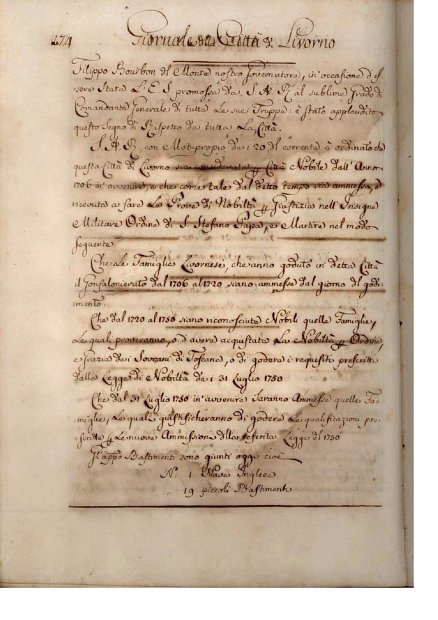 274 Giornale della Città di Livorno
Filippo Bourbon del Monte nostro Governatore, in occasione d'es
sere stata L'E. S. promossa da S. A. R. al sublime Grado di
Comandante Generale di tutte Le sue Truppe: è stato applaudito
questo segno di Rispetto da tutta La Città.
S. A. R. con Motuproprio de 20 del corrente à ordinato che
questa Città di Livorno sia considerata Città Nobile dall'Anno
1706 in avvenire, e che come tale dal detto tempo sia ammessa, e
ricevuta a fare Le Prove di Nobiltà Giustizia nell'Insigne
Militare Ordine di S. Stefano Papa, e Martire nel modo
seguente.
Che Le Famiglie Livornesi, che anno goduto in detta Città
il Gonfalonierato dal 1706 al 1720 siano ammesse dal giorno del godi
mento.
Che dal 1720 al 1750 siano riconosciute Nobili quelle Famiglie,
Le quali proveranno, o d'avere acquistata La Nobiltà
e Grazia dei Sovrani di Toscana, o di godere i requisiti prescritti
dalla Legge di Nobiltà de 31 Luglio 1750
Che dal 31 Luglio 1750 in avvenire saranno Ammesse quelle Fa
miglie, Le quali giustificheranno di godere Le qualificazioni pre
scritte Le nuove Ammissioni dalla referita Legge del 1750
Bastimenti sono giunti oggi cioè
N.° 1 Nave Inglese
19 piccoli Bastimenti